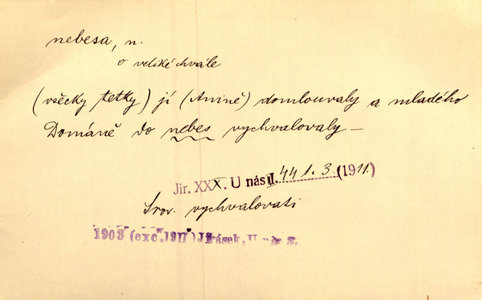 nebesa, n.
o veliké chvále
(všecky tetky) jí (Anině) domlouvaly a mladého
Dománě do nebes vychvalovaly —
Jir. XXX. U nás I. 441. 3. (1911)
Srov. vychvalovati
1903 (exc. 1911) Jirásek, U nás